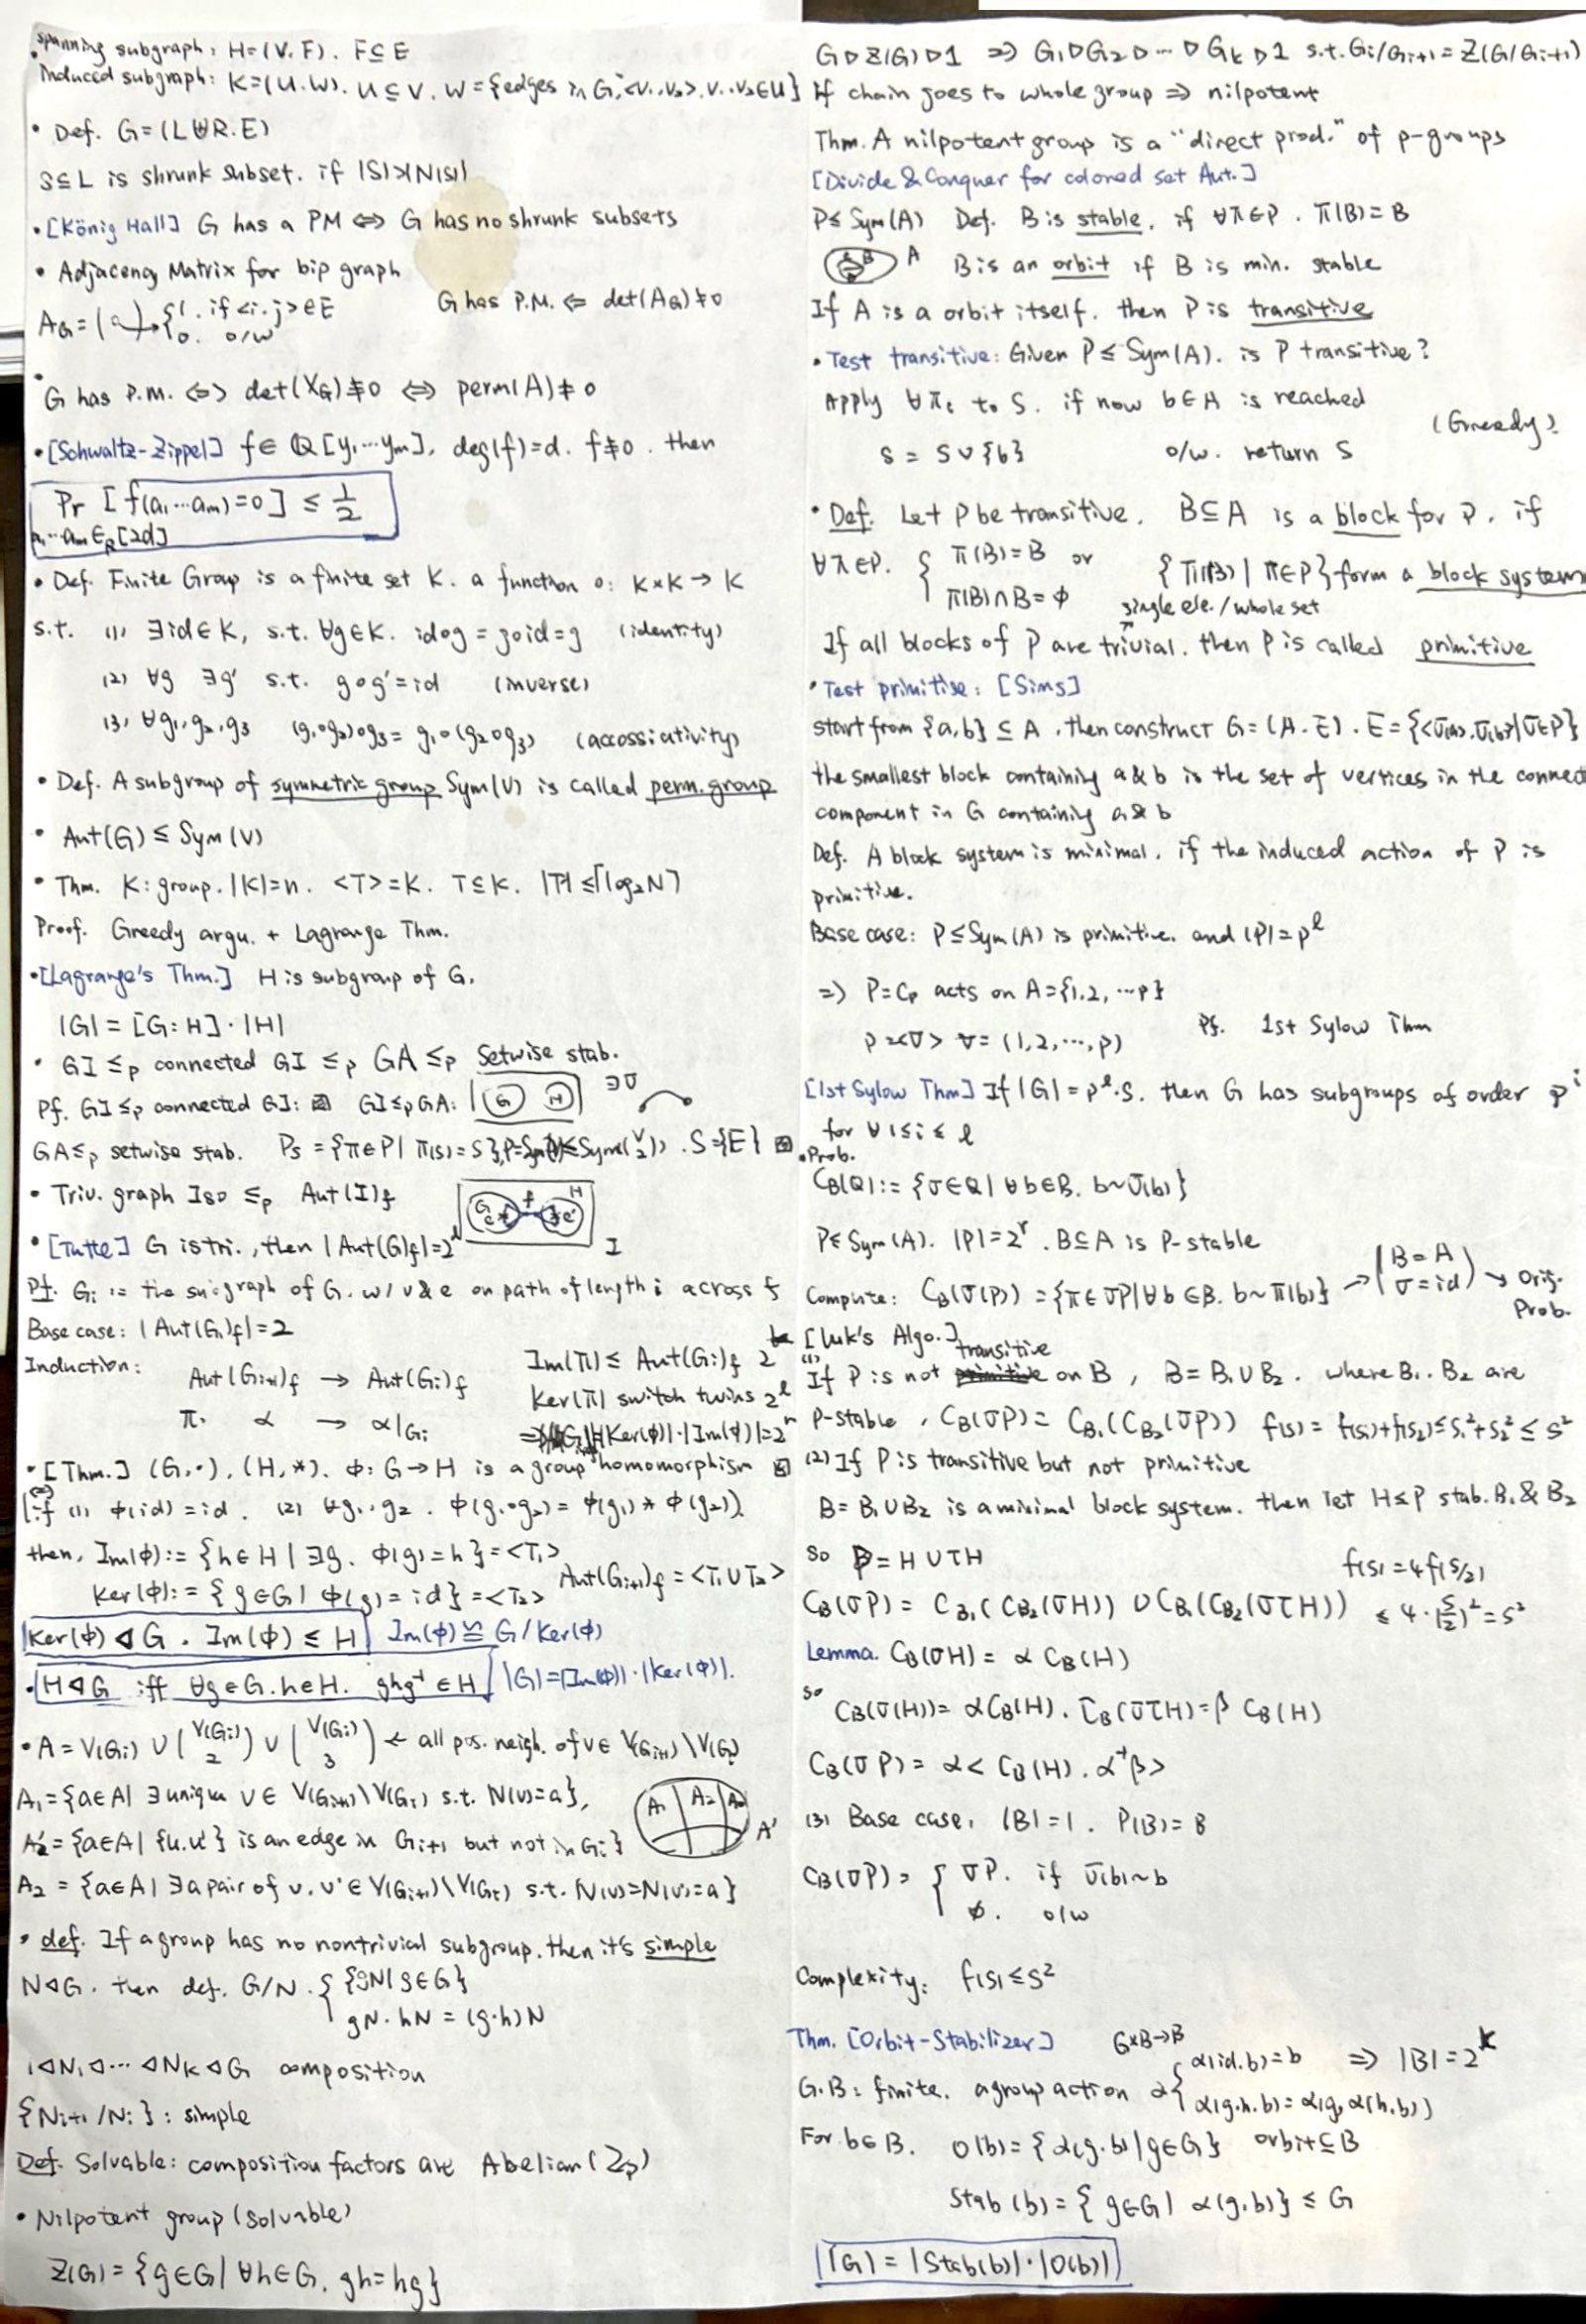 spanning subgraph: H=(V,F). F⊆E
Induced subgraph: K=(U,W). U⊆V. W={edges in G, <v1,v2>, v1,v2∈U}
• Def. G=(L⊎R.E)
S⊆L is shrunk subset. if |S|>|N(S)|
• [König Hall] G has a PM ⇔ G has no shrunk subsets
• Adjacency Matrix for bip graph
A_G = ( a ) → { 1. if <i.j>∈E
0. o/w
G has P.M. ⇐ det(A_G)≠0
• G has P.M. ⇔ det(X_G)≢0 ⇔ perm(A)≠0
• [Schwaltz-Zippel] f∈Q[y1…ym], deg(f)=d. f≢0. then
Pr [f(a1…am)=0] ≤ 1/2
a1…am ∈_R [2d]
• Def. Finite Group is a finite set K. a function o: K×K→K
s.t. (1) ∃id∈K, s.t. ∀g∈K. id∘g = g∘id=g (identity)
(2) ∀g ∃g' s.t. g∘g'=id (inverse)
(3) ∀g1,g2,g3 (g1∘g2)∘g3 = g1∘(g2∘g3) (accossiativity)
• Def. A subgroup of symmetric group Sym(V) is called perm. group
• Aut(G) ≤ Sym(V)
• Thm. K: group. |K|=n. <T>=K. T⊆K. |T| ≤⌈log2N⌉
Proof. Greedy argu. + Lagrange Thm.
• [Lagrange's Thm.] H is subgroup of G.
|G| = [G:H]·|H|
• GI ≤p connected GI ≤p GA ≤p Setwise stab.
Pf. GI ≤p connected GI: GI≤p GA: G H ∃σ
GA≤p setwise stab. Ps={π∈P| π(s)=S}, S={E}
• Triv. graph Iso ≤p Aut(I)f
G e f H e' I
• [Tutte] G is tri., then |Aut(G)f|=2^l
Pf. Gi := the subgraph of G. w/ v&e on path of length i across f
Base case: |Aut(G1)f|=2
Induction: Aut(Gi+1)f → Aut(Gi)f
π. α → α|Gi
Im(π) ≤ Aut(Gi)f 2^k
Ker(π) switch twins 2^l
|Ker(φ)|·|Im(φ)|=2^n
• [Thm.] (G,·), (H,*). φ: G→H is a group homomorphism
if (1) φ(id)=id. (2) ∀g1,g2. φ(g1∘g2)=φ(g1)*φ(g2)
then, Im(φ):={h∈H | ∃g. φ(g)=h}=<T1>
Ker(φ):={g∈G | φ(g)=id}=<T2> Aut(Gi+1)f=<T1∪T2>
Ker(φ)◁G. Im(φ)≤H Im(φ)≅G/Ker(φ)
• H◁G iff ∀g∈G.h∈H. ghg⁻¹∈H |G|=|Im(φ)|·|Ker(φ)|.
• A=V(Gi)∪(V(Gi) 2)∪(V(Gi) 3) ← all pos. neigh. of v∈V(Gi+1)\V(Gi)
A1={a∈A| ∃unique v∈V(Gi+1)\V(Gi) s.t. N(v)=a},
A2'={a∈A| {u.u'} is an edge in Gi+1 but not in Gi}
A1 A2 A' 
A2={a∈A| ∃a pair of v.v'∈V(Gi+1)\V(Gi) s.t. N(v)=N(v')=a}
• def. If a group has no nontrivial subgroup. then it's simple
N◁G. then def. G/N. { {gN| g∈G}
gN·hN=(g·h)N
1◁N1◁…◁Nk◁G composition
{Ni+1/Ni}: simple
Def. Solvable: composition factors are Abelian (Zp)
• Nilpotent group (solvable)
Z(G)={g∈G| ∀h∈G, gh=hg}
G▷Z(G)▷1 ⇒ G1▷G2▷…▷Gk▷1 s.t. Gi/Gi+1=Z(G/Gi+1)
If chain goes to whole group ⇒ nilpotent
Thm. A nilpotent group is a "direct prod." of p-groups
[Divide & Conquer for colored set Aut.]
P≤Sym(A) Def. B is stable. if ∀π∈P. π(B)=B
B A B is an orbit if B is min. stable
If A is a orbit itself. then P is transitive
• Test transitive: Given P≤Sym(A). is P transitive?
Apply ∀πi to S. if new b∈A is reached
S = S∪{b} o/w. return S (Greedy).
• Def. Let P be transitive. B⊆A is a block for P. if
∀π∈P. { π(B)=B or
π(B)∩B=∅
{π(B) | π∈P} form a block system
single ele. / whole set
If all blocks of P are trivial. then P is called primitive
• Test primitise: [Sims]
start from {a,b}⊆A, then construct G=(A.E). E={<σ(a),σ(b)>|σ∈P}
the smallest block containing a&b is the set of vertices in the connect
component in G containing a&b
Def. A block system is minimal. if the induced action of P is
primitive.
Base case: P≤Sym(A) is primitive. and |P|=p^l
⇒ P=Cp acts on A={1.2,…p}
P=<σ> σ=(1,2,…,p)
Pf. 1st Sylow Thm
[1st Sylow Thm] If |G|=p^l·s. then G has subgroups of order p^i
for ∀1≤i≤l
• Prob.
C_B(Q):={σ∈Q| ∀b∈B. b~σ(b)}
P≤Sym(A). |P|=2^r. B⊆A is P-stable
Compute: C_B(σ(P))={π∈σP|∀b∈B. b~π(b)} → (B=A
σ=id) → Orig. Prob.
[Luk's Algo.]
(1) If P is not transitive on B, B=B1∪B2. where B1.B2 are
P-stable, C_B(σP)=C_B1(C_B2(σP)) f(s)=f(s1)+f(s2)≤s1²+s2²≤s²
(2) If P is transitive but not primitive
B=B1∪B2 is a minimal block system. then let H≤P stab. B1&B2
so P=H∪τH
f(s)=4f(s/2)
C_B(σP)=C_B1(C_B2(σH))∪C_B1(C_B2(στH)) ≤4·(s/2)²=s²
Lemma. C_B(σH)=αC_B(H)
so C_B(σ(H))=αC_B(H). C_B(στH)=βC_B(H)
C_B(σP)=α<C_B(H). α⁻¹β>
(3) Base case. |B|=1. P(B)=B
C_B(σP)= { σP. if σ(b)~b
∅. o/w
Complexity: f(s)≤s²
Thm. [Orbit-Stabilizer] G×B→B
G.B: finite. a group action α { α(id.b)=b ⇒ |B|=2^k
α(g.h.b)=α(g,α(h.b))
For b∈B. O(b)={α(g.b)|g∈G} orbit⊆B
Stab(b)={g∈G| α(g,b)}≤G
|G|=|Stab(b)|·|O(b)|